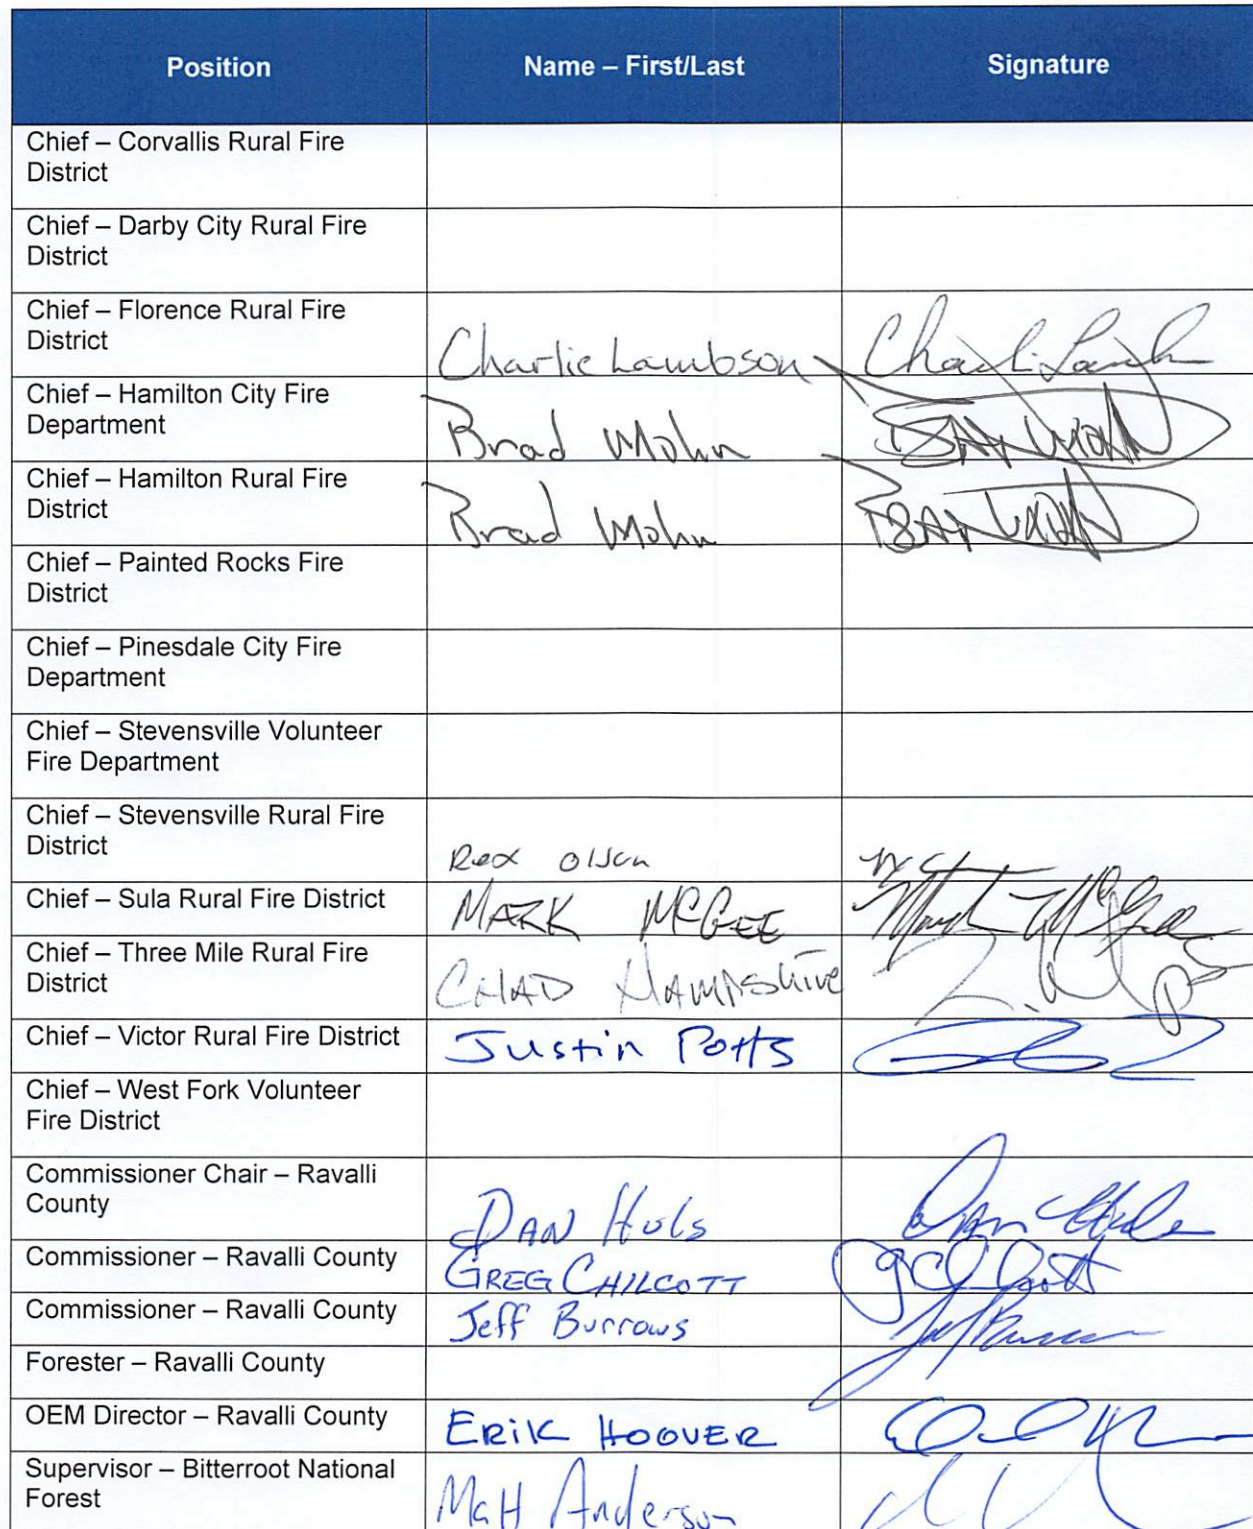 Position Name – First/Last Signature
Chief – Corvallis Rural Fire
District
Chief – Darby City Rural Fire
District
Chief – Florence Rural Fire
District
Charlie Lambson
Chief – Hamilton City Fire
Department
Brad Mohn
Chief – Hamilton Rural Fire
District
Brad Mohn
Chief – Painted Rocks Fire
District
Chief – Pinesdale City Fire
Department
Chief – Stevensville Volunteer
Fire Department
Chief – Stevensville Rural Fire
District
Rex Olson
Chief – Sula Rural Fire District MARK McGEE
Chief – Three Mile Rural Fire
District
CHAD HAMPSHIRE
Chief – Victor Rural Fire District Justin Potts
Chief – West Fork Volunteer
Fire District
Commissioner Chair – Ravalli
County
DAN Huls
Commissioner – Ravalli County GREG CHILCOTT
Commissioner – Ravalli County Jeff Burrows
Forester – Ravalli County
OEM Director – Ravalli County ERIK HOOVER
Supervisor – Bitterroot National
Forest
Matt Anderson